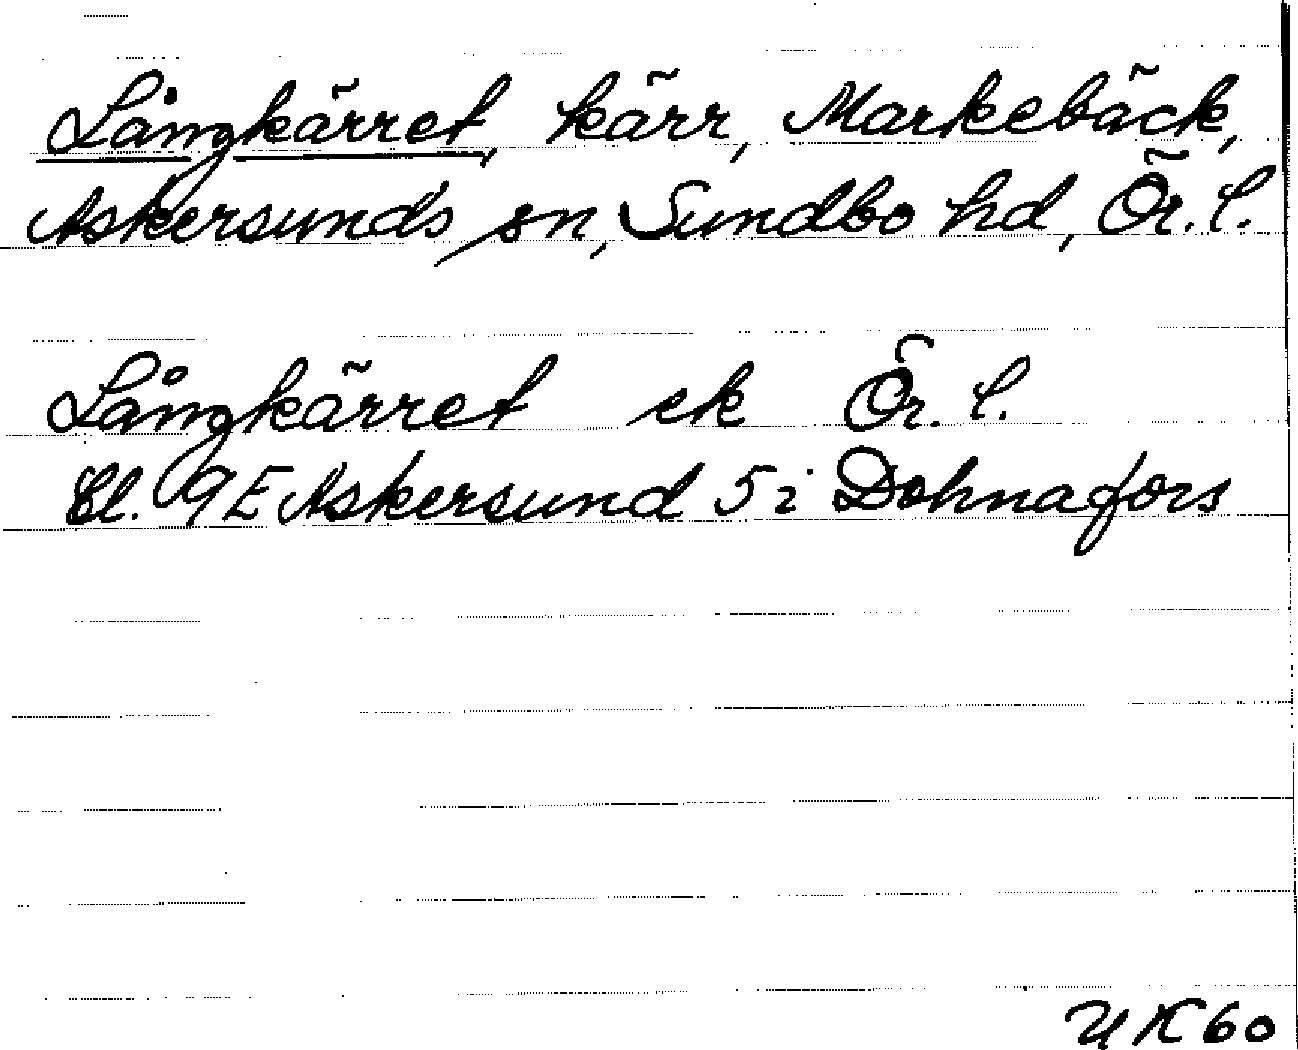 Långkärret, kärr, Markebäck,
Askersunds sn, Sundbo hd, Ör. l.
Långkärret ek Ör. l.
Bl. 9E Askersund 5 i Dohnafors
UK60